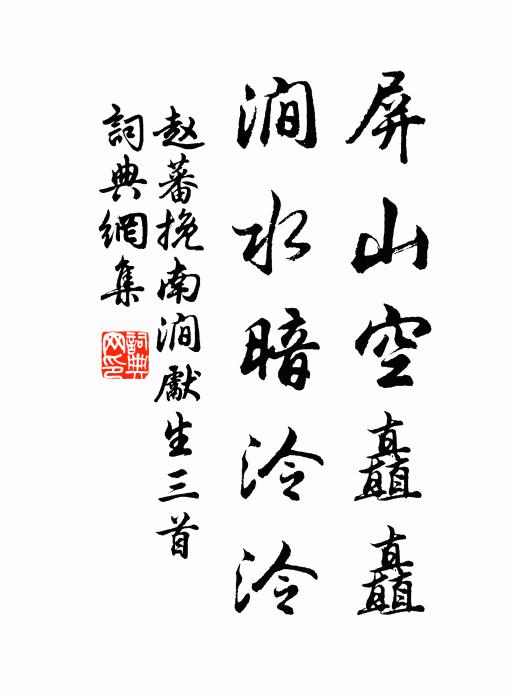 屏山空矗矗
澗水暗泠泠
赵蕃挽南澗獻生三首
詞典網集
詞典網印